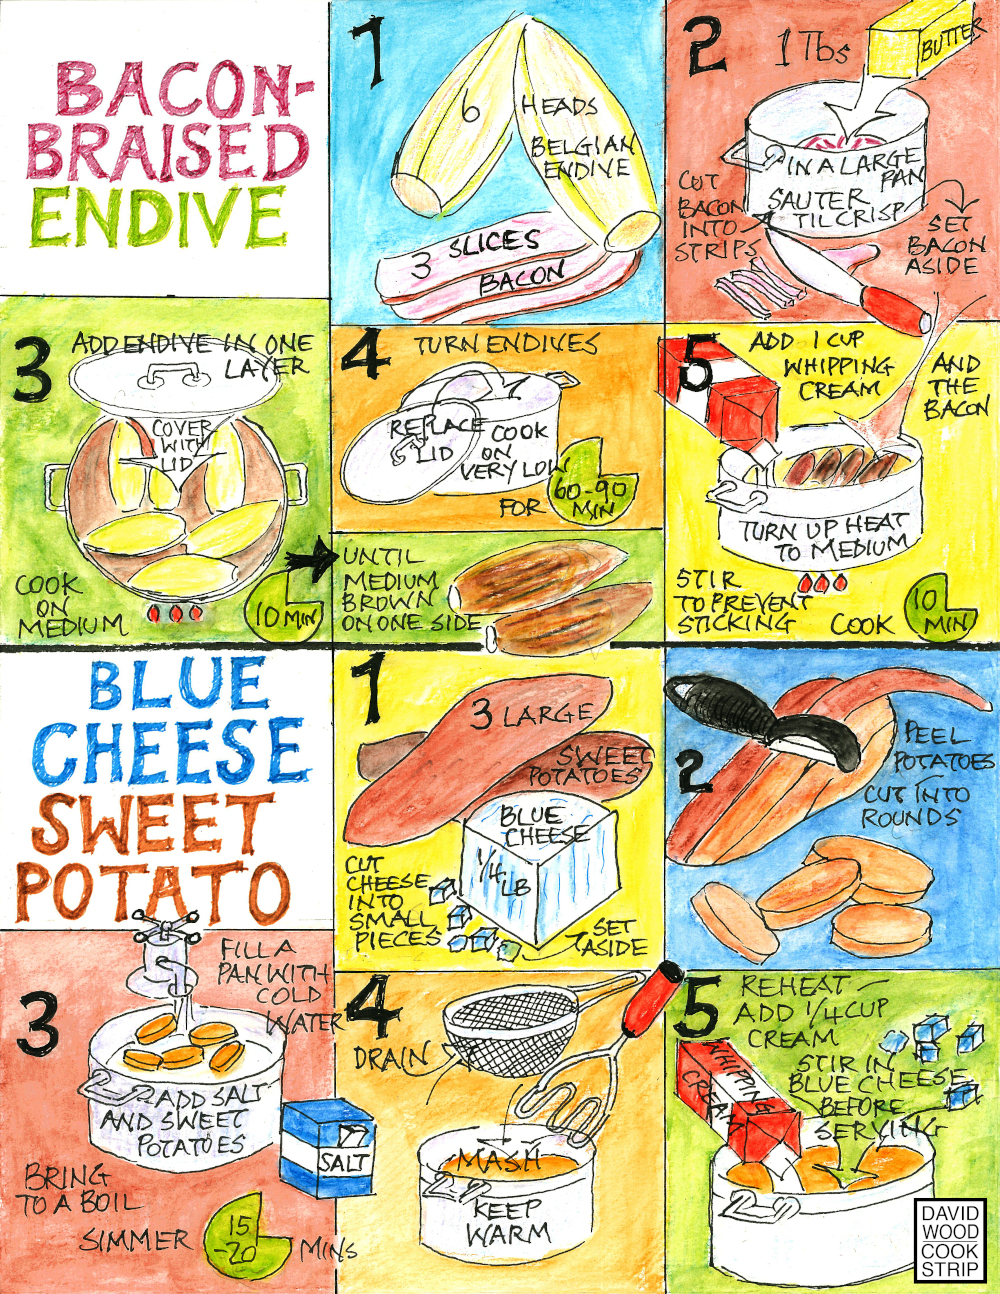 BACON-
BRAISED
ENDIVE
1
6 HEADS
BELGIAN
ENDIVE
3 SLICES
BACON
2
1 Tbs
BUTTER
IN A LARGE
PAN
SAUTER
TIL CRISP
CUT
BACON
INTO
STRIPS
SET
BACON
ASIDE
3
ADD ENDIVE IN ONE
LAYER
COVER
WITH
LID
COOK
ON
MEDIUM
10 MIN
4
TURN ENDIVES
REPLACE
LID
COOK
ON
VERY LOW
FOR
60-90
MIN
UNTIL
MEDIUM
BROWN
ON ONE SIDE
5
ADD 1 CUP
WHIPPING
CREAM
AND
THE
BACON
TURN UP HEAT
TO MEDIUM
STIR
TO PREVENT
STICKING
COOK
10
MIN
BLUE
CHEESE
SWEET
POTATO
1
3 LARGE
SWEET
POTATOES
BLUE
CHEESE
1/4
LB
CUT
CHEESE
INTO
SMALL
PIECES
SET
ASIDE
2
PEEL
POTATOES
CUT INTO
ROUNDS
3
FILL A
PAN WITH
COLD
WATER
ADD SALT
AND SWEET
POTATOES
SALT
BRING
TO A BOIL
SIMMER
15
-20
MINS
4
DRAIN
MASH
KEEP
WARM
5
REHEAT
ADD 1/4 CUP
CREAM
STIR IN
BLUE CHEESE
BEFORE
SERVING
WHIPPING
CREAM
DAVID
WOOD
COOK
STRIP